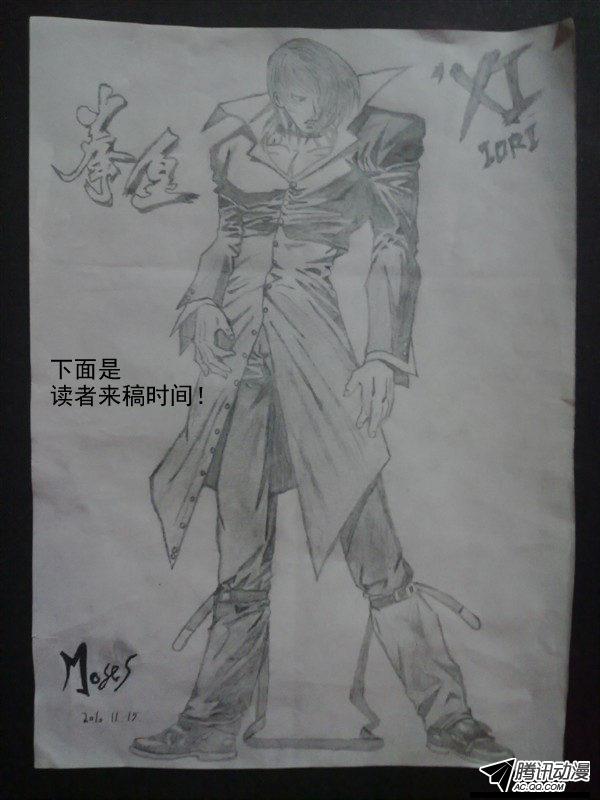 拳皇
'XI
IORI
下面是
读者来稿时间!
Moses
2010.11.17
腾讯动漫
AC.QQ.COM